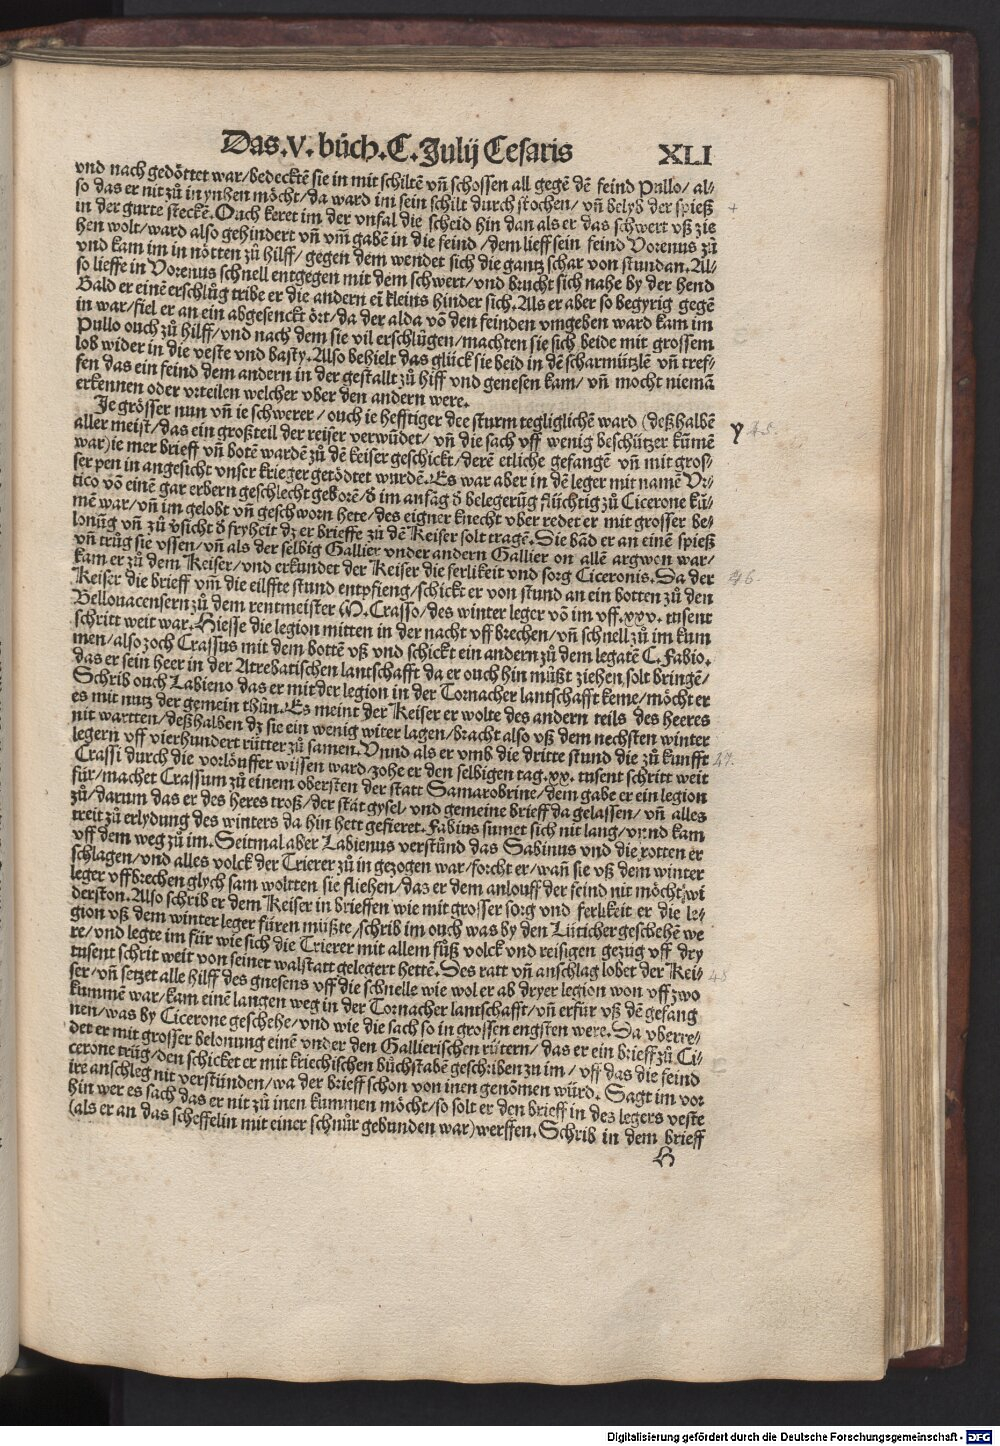 Das.V.bůch.C.Julij Cesaris XLI
vnd nach gedöttet war/bedecktẽ sie in mit schiltẽ vñ schossen all gegẽ dẽ feind Pullo/al⸗
so das er nit zů in ynhen möcht/da ward im sein schilt durch stochen/vñ belyb der spieß +
in der gurte steckẽ.Ouch keret im der vnfal die scheid hin dan als er das schwert vß zie
hen wolt/ward also gehindert vñ vm̃ gabẽ in die feind/dem lieff sein feind Vorenus zů
vnd kam im in nötten zů hilff/gegen dem wendet sich die gantz schar von stundan.Al⸗
so lieffe in Vorenus schnell entgegen mit dem schwert/vnd brucht sich nahe by der hend
Bald er einẽ erschlůg tribe er die andern eĩ kleins hinder sich.Als er aber so begyrig gegẽ
in war/fiel er an ein abgesenckt ört/da der alda võ den feinden vmgeben ward kam im
Pullo ouch zů hilff/vnd nach dem sie vil erschlůgen/machten sie sich beide mit grossem
lob wider in die veste vnd basty.Also behielt das glück sie beid in dẽ scharmützlẽ vñ tref⸗
fen das ein feind dem andern in der gestallt zů hiff vnd genesen kam/vñ mocht niemã
erkennen oder vrteilen welcher vber den andern were.
Je grösser nun vñ ie schwerer/ouch ie hefftiger dee sturm tegliglichẽ ward (deßhalbẽ
aller meist/das ein großteil der reiser verwũdet/vñ die sach vff wenig beschützer kũmẽ 45.
war)ie mer brieff vñ botẽ wardẽ zů dẽ keiser geschickt/derẽ etliche gefangẽ vñ mit gros⸗
ser pen in angesicht vnser krieger getödtet wurdẽ.Es war aber in dẽ leger mit namẽ Ver⸗
tico võ einẽ gar erbern geschlecht geborẽ/d̕ im anfãg d̕ belegerũg flüchtig zů Cicerone kũ⸗
mẽ war/vñ im gelobt vñ geschworn hete/des eigner knecht vber redet er mit grosser be⸗
lonũg vñ zů v̕sicht d̕ fryheit dz er brieffe zů dẽ Keiser solt tragẽ.Sie bãd er an einẽ spieß
vñ trůg sie vssen/vñ als der selbig Gallier vnder andern Gallier on allẽ argwon war/
kam er zů dem Keiser/vnd erkundet der Keiser die ferlikeit vnd sorg Ciceronis.Da der 46.
Keiser die brieff vm̃ die eilffte stund entpfieng/schickt er von stund an ein botten zů den
Bellouacensern zů dem rentmeister M.Crasso/des winter leger võ im vff.xxv.tusent
schritt weit war.Hiesse die legion mitten in der nacht vff brechen/vñ schnell zů im kum
men/also zoch Crassus mit dem bottẽ vß vnd schickt ein andern zů dem legatẽ C.Fabio.
das er sein heer in der Atrebatischen lantschafft da er ouch hin můßt ziehen solt bringẽ/
Schrib ouch Labieno das er mit der legion in der Tornacher lantschafft keme/möcht er
es mit nutz der gemein thůn.Es meint der Keiser er wolte des andern teils des heeres
nit wartten/deßhalben dz sie ein wenig witer lagen/bracht also vß dem nechsten winter
legern vff vierhundert rütter zů samen.Vnnd als er vmb die dritte stund die zů kunfft 47.
Crassi durch die vorlöuffer wissen ward/zohe er den selbigen tag.xx.tusent schritt weit
für/machet Crassum zů einem obersten der statt Samarobrine/dem gabe er ein legion
zů/darum das er des heres troß/der stät gysel vnd gemeine brieff da gelassen/vñ alles
treit zů erlydung des winters da hin hett gefieret.Fabius sumet sich nit lang/vnnd kam
vff dem weg zů im.Seitmal aber Labienus verstünd das Sabinus vnd die rotten er
schlagen/vnd alles volck der Trierer zů in gezogen war/forcht er/wañ sie vß dem winter
leger vffbrechen glych sam woltten sie fliehen/das er dem anlouff der feind nit möcht wi
derston.Also schrib er dem Keiser in brieffen wie mit grosser sorg vnd ferlikeit er die le⸗
gion vß dem winter leger füren müßte/schrib im ouch was by den Lüticher geschehẽ we
re/vnd legte im für wie sich die Trierer mit allem fůß volck vnd reisigen gezüg vff dry
tusent schrit weit von seiner walstatt gelegert hettẽ.Des ratt vñ anschlag lobet der Kei⸗ 48
ser/vñ setzet alle hilff des gnesens vff die schnelle wie wol er ab dryer legion won vff zwo
kummẽ war/kam einẽ langen weg in der Tornacher lantschafft/vñ erfůr vß dẽ gefang
nen/was by Cicerone geschehe/vnd wie die sach so in grossen engsten were.Da vberre⸗
det er mit grosser belonung einẽ vnder den Gallierischen rütern/das er ein brieff zů Ci⸗
cerone trüg/den schicket er mit kriechischen bůchstabẽ geschriben zu im/vff das die feind
ire anschleg nit verstünden/wa der brieff schon von inen genõmen würd. Sagt im vor
hin wer es sach das er nit zů inen kummen möcht/so solt er den brieff in des legers veste
(als er an das scheffelin mit einer schnůr gebunden war)werffen.Schrib in dem brieff
H
Digitalisierung gefördert durch die Deutsche Forschungsgemeinschaft - DFG